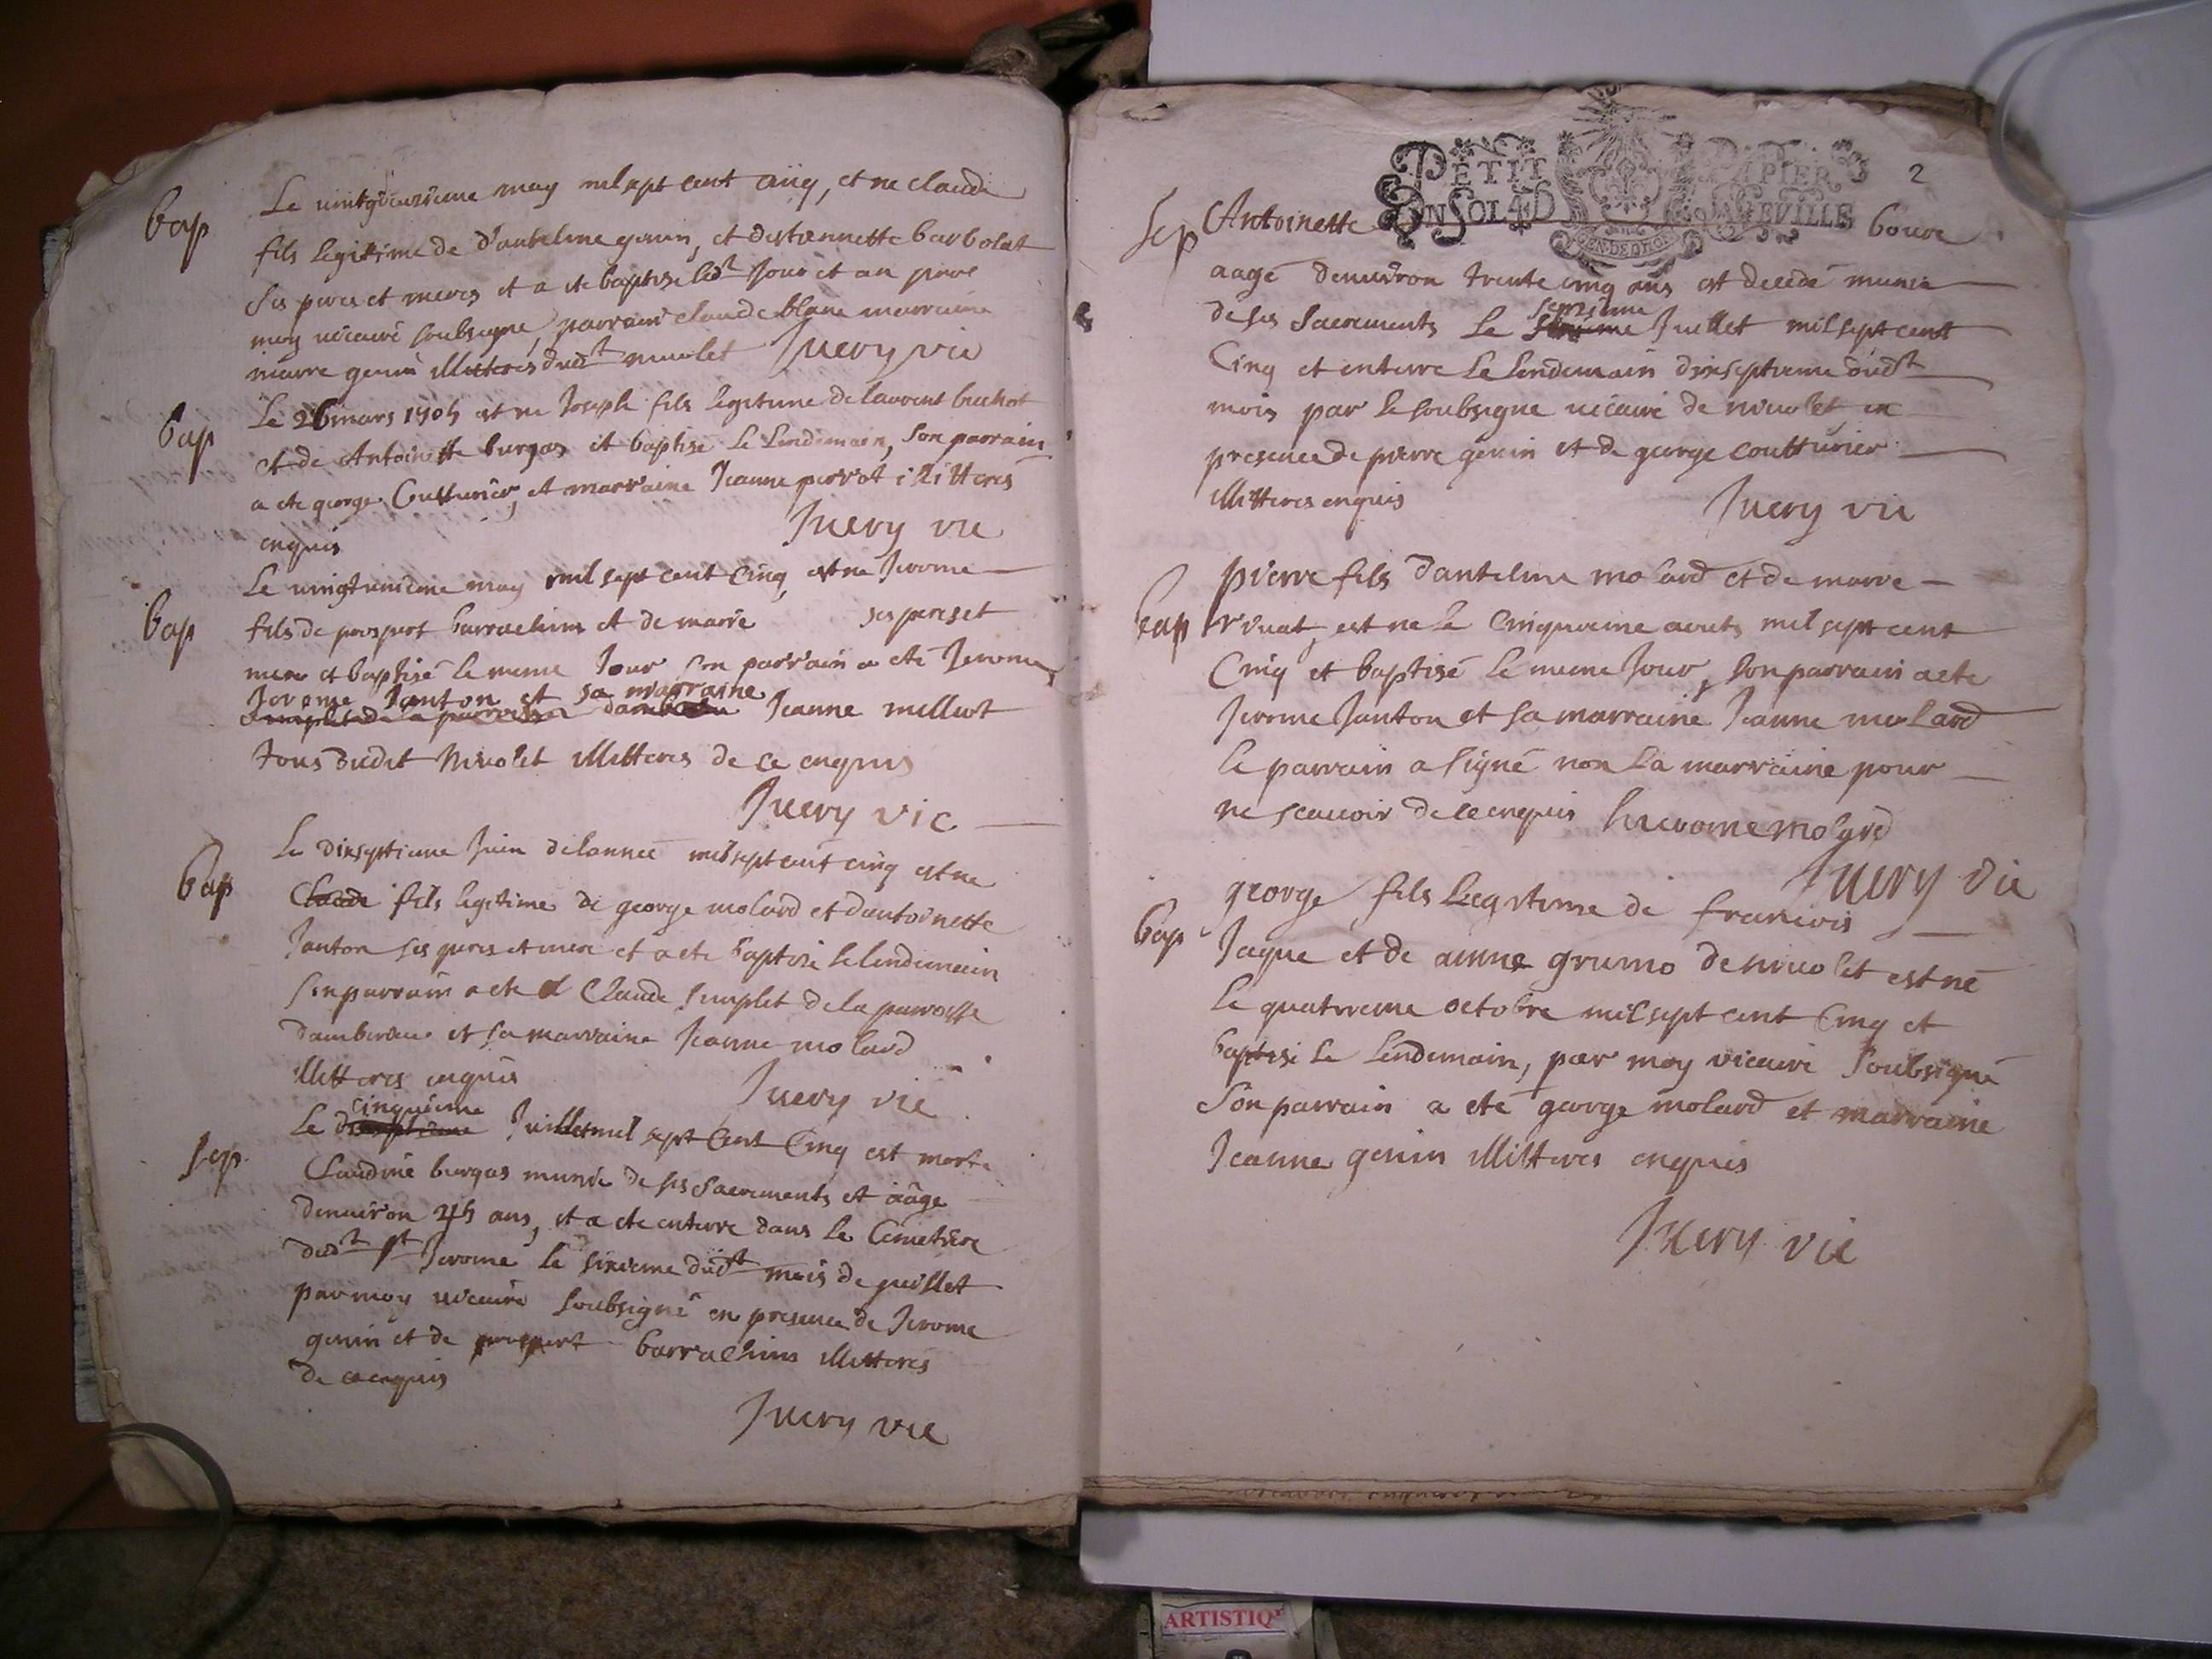 bap
Le may mil sept cent cinq, est ne claude
fils legittime de d'antelme genin, et destiennette barbolat
ses peres et meres et a ete baptise led.t jour et an par
moy vicaire soubsigné, parrain claude blanc marraine
genin illitteres dud.t nivolet Juery vic
bap
Le 26 mars 1705 est ne Joseph fils legitime de laurent
et de Antoinette burgas et baptisé le Lendemain, son parrain
a ete george Cutturier, et marraine Jeanne perrot illitteres
enquis Juery vic
bap
Le vingtunieme may mil sept cent cinq, est ne Jerome
fils de prospert barrachins et de marie ses peres et
mere et baptisé le meme Jour son parrain a eté Jerome
Jerome Janton et sa marraine
Jeanne
tous dudit Nivolet illitteres de ce enquis
Juery vic
bap
Le dixseptieme Juin de lannée mil sept cent cinq est ne
Claude fils legitime de george molard et dantoinette
Janton ses peres et mere et a ete baptisé le lendemain
son parrain a ete Claude simplet de la paroisse
et sa marraine Jeanne molard
illitteres enquis Juery vic
cinquieme
sep
Le Juillet mil sept Cent Cinq est morte
Claudine burgas munie de ses Sacrements et aâgé
denviron 45 ans, et a ete enterré dans le Cimetiere
dud.t st Jerome le sixieme dud.t mois de juillet
par moy vicaire soubsigné en presence de Jerome
genin et de prospert barrachins illitteres
de ce enquis
Juery vic
2
PETIT PAPIER
UN SOL 4 D LA FEVILLE
GEN. DE DIION
sep
Antoinette bouve
aagé denviron trente cinq ans est decedé munie
seizieme
de ses Sacrements Le Juillet mil sept cent
Cinq et enterré Le Lendemain dixseptieme dud.t
mois par le soubsigné vicaire de nivolet en
presence de pierre genin et de george coutturier
illitteres enquis Juery vic
bap
pierre fils dantelme molard et de marie
est ne le Cinquieme aouts mil sept cent
Cinq et baptisé le meme Jour, son parrain a ete
Jerome Janton et sa marraine Jeanne molard
le parrain a signé non La marraine pour
ne scavoir de ce enquis hierome molard
Juery vic
bap
george fils Legitime de francois
Jaque et de anne grumo de nivolet est né
Le quatrieme octobre mil sept cent Cinq et
baptisé Le Lendemain, par moy vicaire Soubsigné
Son parrain a eté george molard et marraine
Jeanne genin illitteres enquis
Juery vic
ARTISTIQ